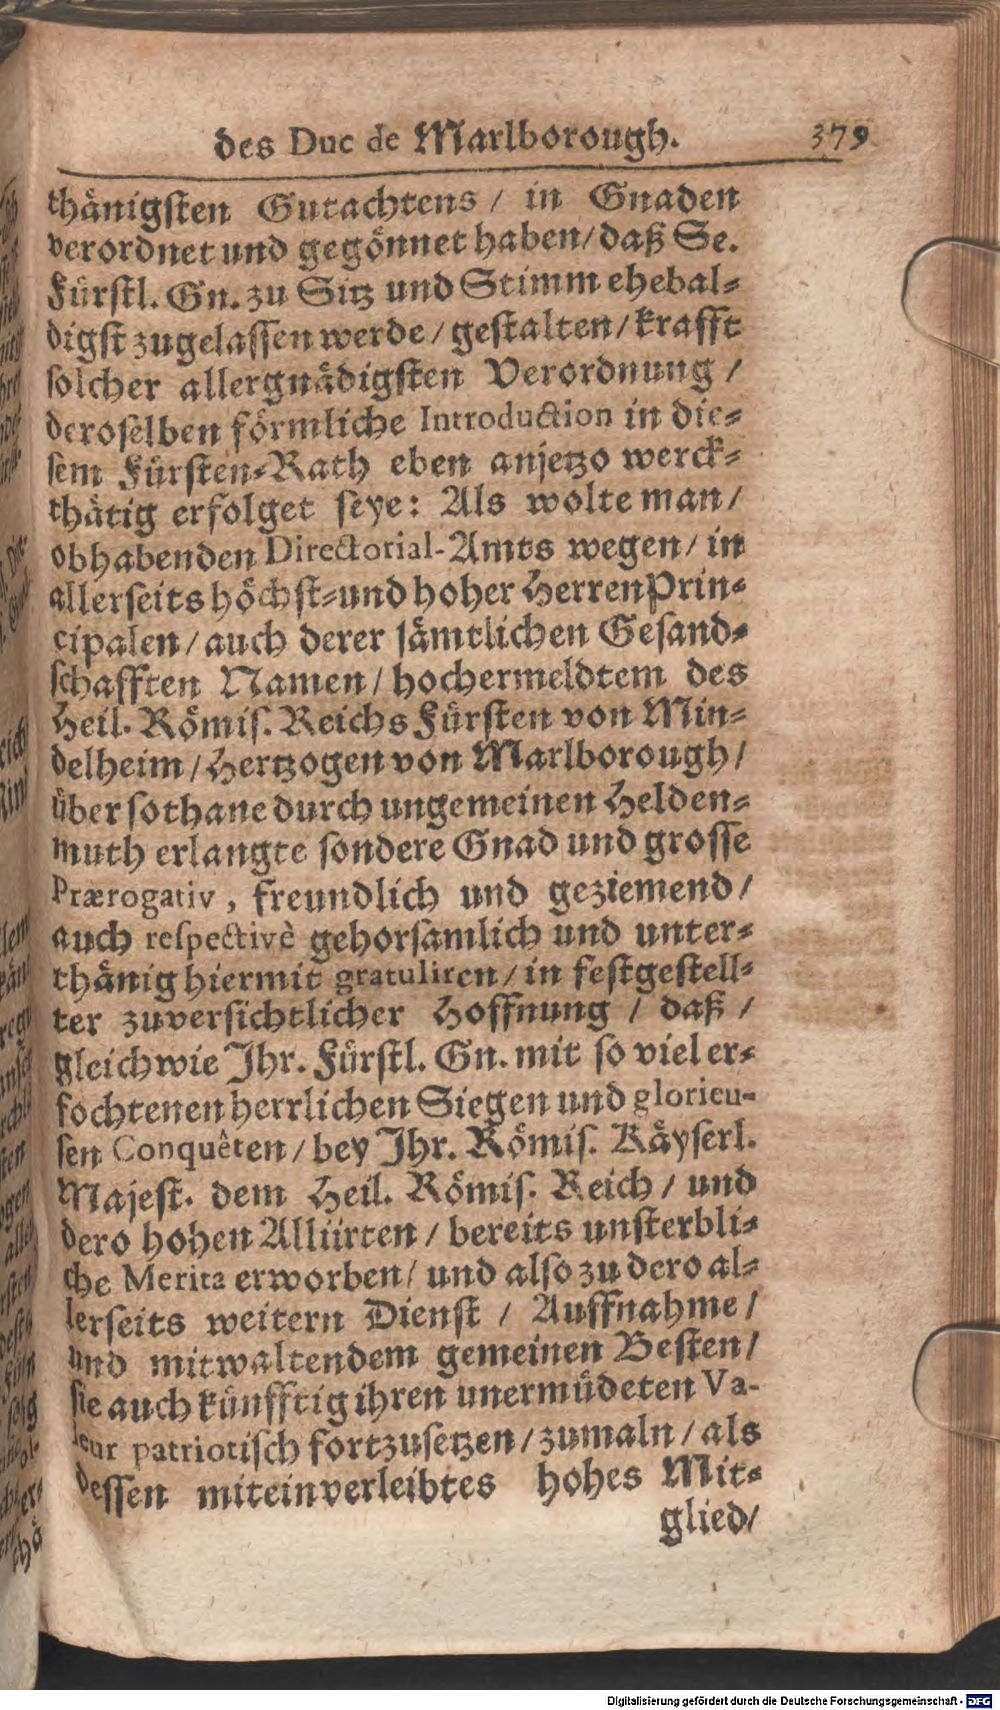 des Duc de Marlborough. 379
thänigsten Gutachtens / in Gnaden
verordnet und gegönnet haben / daß Se.
Fürstl. Gn. zu Sitz und Stimm ehebal-
digst zugelassen werde / gestalten / krafft
solcher allergnädigsten Verordnung /
deroselben förmliche Introduction in die-
sem Fürsten-Rath eben anjetzo werck-
thätig erfolget seye: Als wolte man /
obhabenden Directorial-Amts wegen / in
allerseits höchst- und hoher Herren Prin-
cipalen / auch derer sämtlichen Gesand-
schafften Namen / hochermeldtem des
Heil. Römis. Reichs Fürsten von Min-
delheim / Hertzogen von Marlborough /
über sothane durch ungemeinen Helden-
muth erlangte sondere Gnad und grosse
Prærogativ, freundlich und geziemend /
auch respectivè gehorsamlich und unter-
thänig hiermit gratuliren / in festgestell-
ter zuversichtlicher Hoffnung / daß /
gleichwie Ihr. Fürstl. Gn. mit so viel er-
fochtenen herrlichen Siegen und glorieu-
sen Conquêten / bey Ihr. Römis. Käyserl.
Majest. dem Heil. Römis. Reich / und
dero hohen Alliirten / bereits unsterbli-
che Merita erworben / und also zu dero al-
lerseits weitern Dienst / Auffnahme /
und mitwaltendem gemeinen Besten /
sie auch künfftig ihren unermüdeten Va-
leur patriotisch fortzusetzen / zumaln / als
dessen miteinverleibtes hohes Mit-
glied /
Digitalisierung gefördert durch die Deutsche Forschungsgemeinschaft - DFG